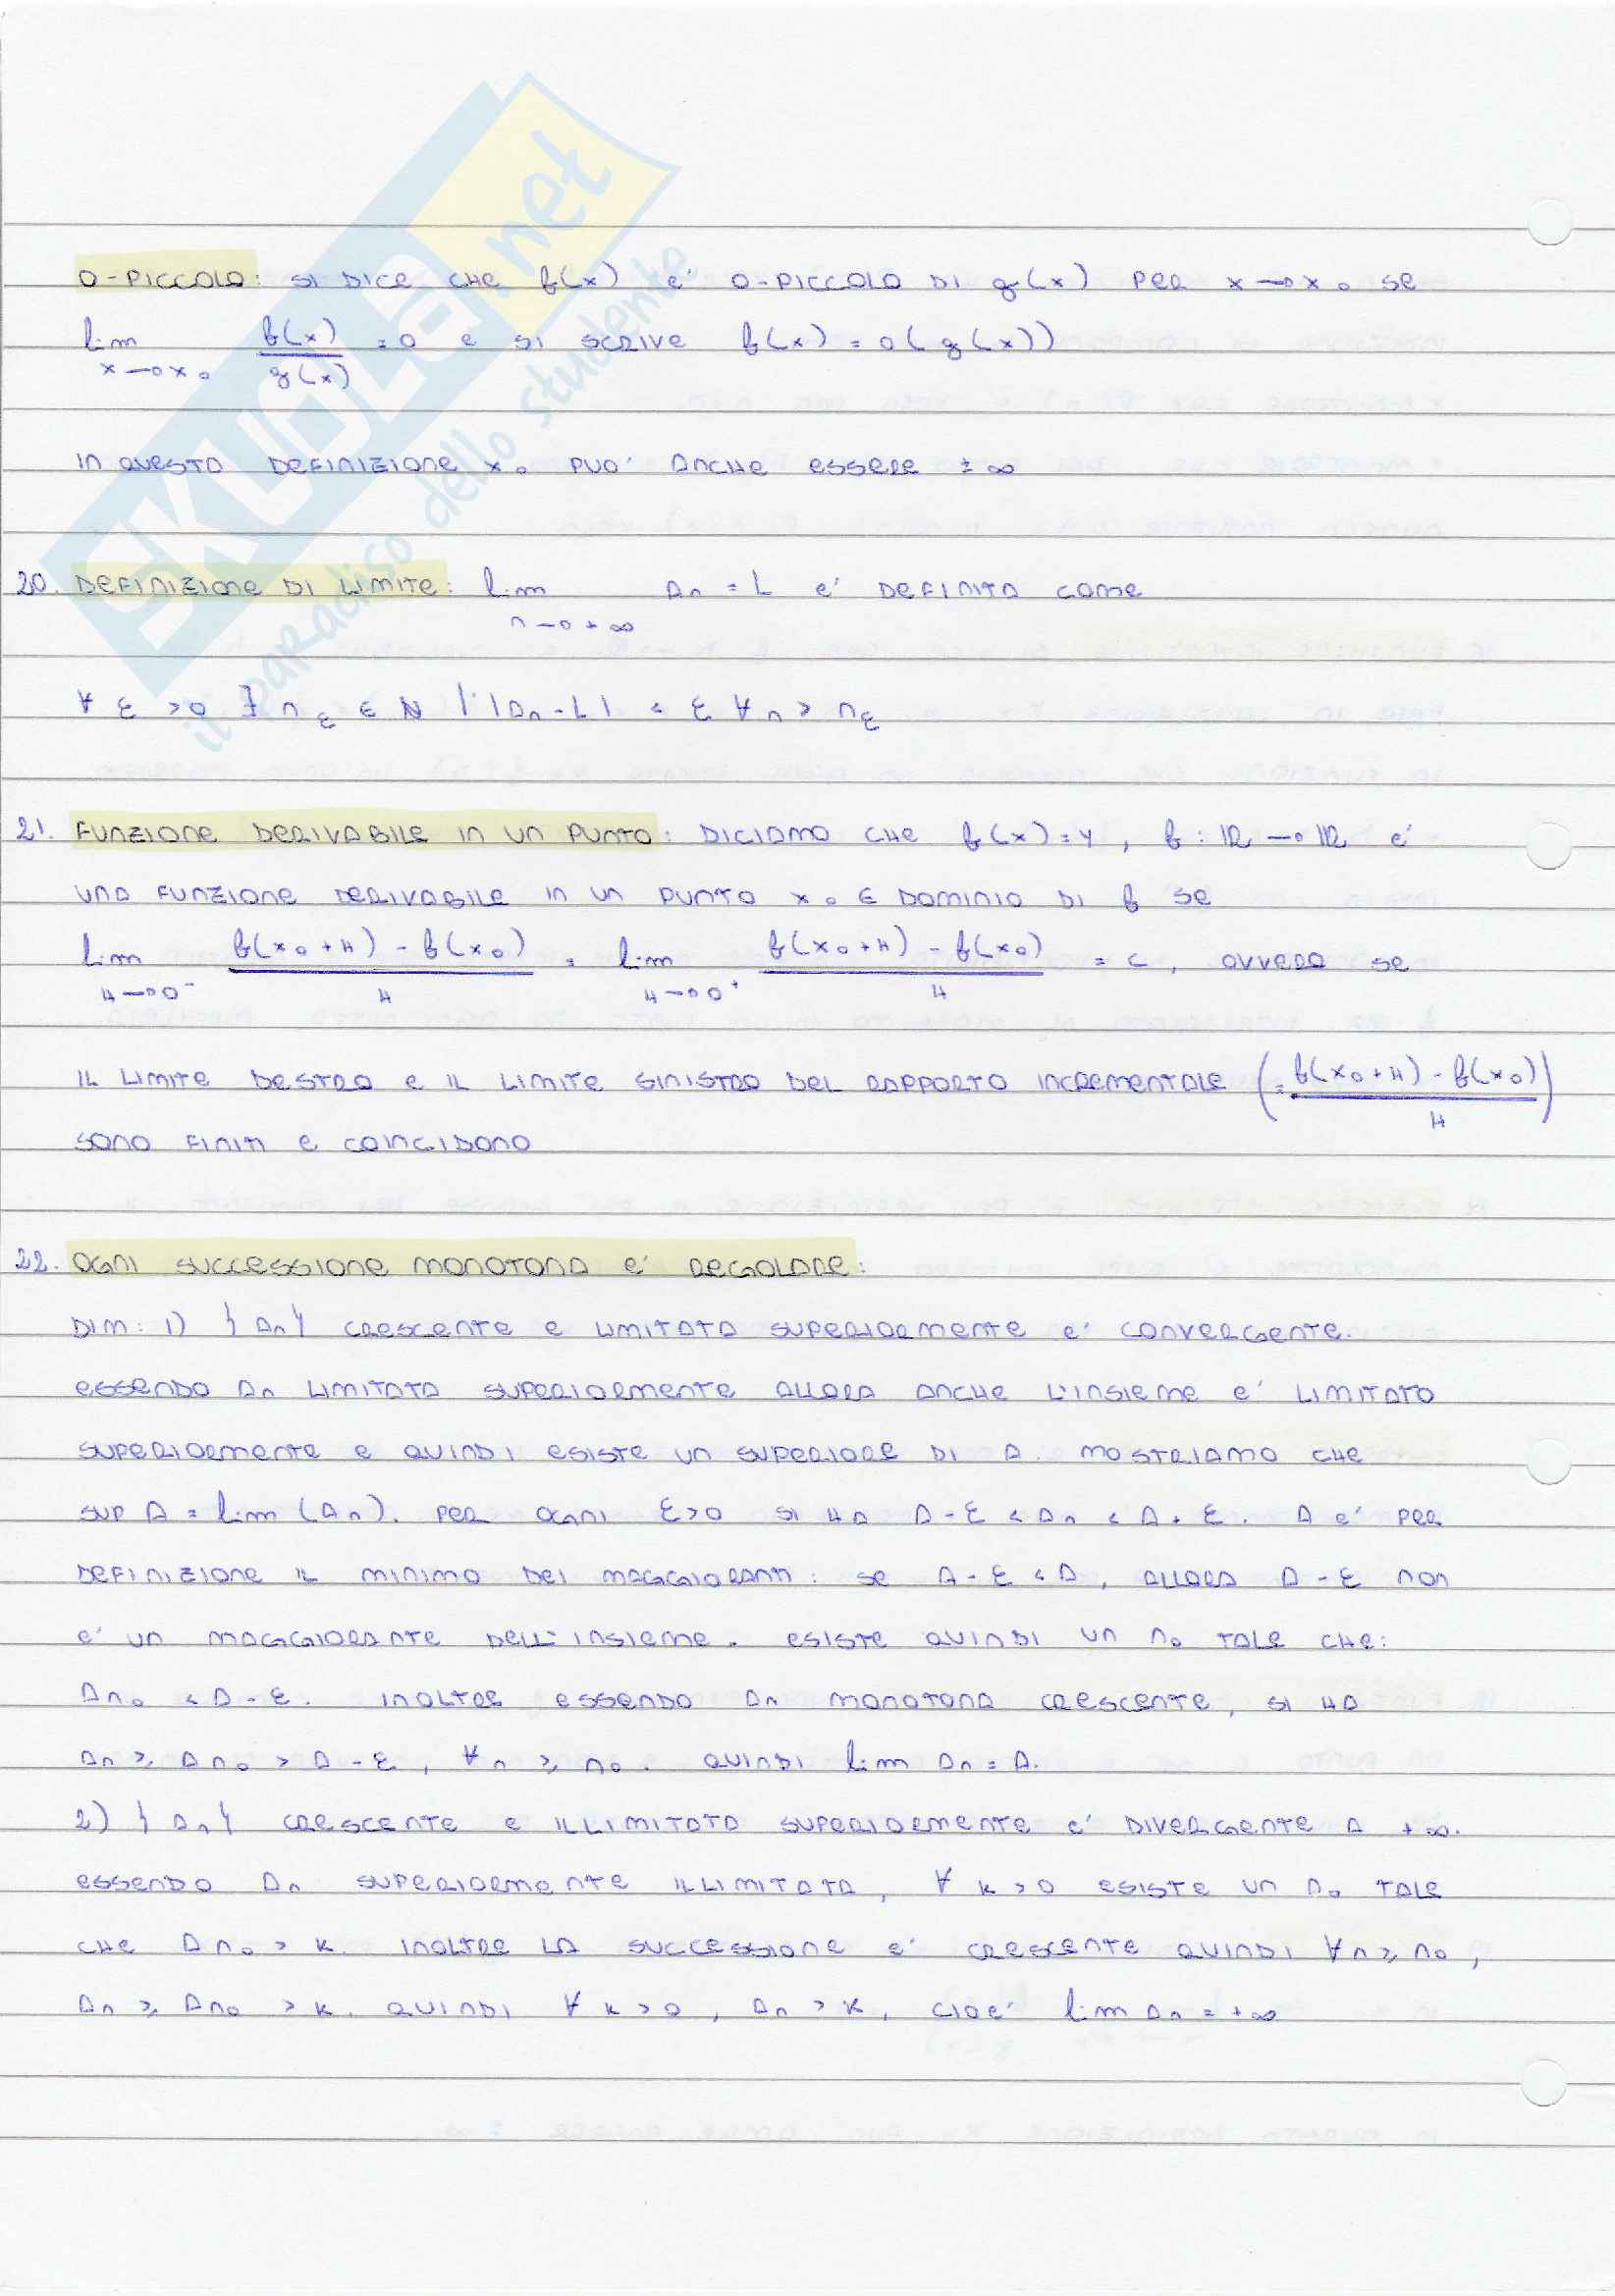 SKUOLA.net
il paradiso dello studente
O-PICCOLO: SI DICE CHE f(x) E' O-PICCOLO DI g(x) PER x→x₀ SE
lim x→x₀ f(x)/g(x) = 0 E SI SCRIVE f(x) = o(g(x))
IN QUESTA DEFINIZIONE x₀ PUO' ANCHE ESSERE ±∞
20. DEFINIZIONE DI LIMITE: lim n→+∞ an = L E' DEFINITO COME
∀ ε > 0 ∃ nε ∈ N | |an - L| < ε ∀n > nε
21. FUNZIONE DERIVABILE IN UN PUNTO: DICIAMO CHE f(x) = y, f: R → R E'
UNA FUNZIONE DERIVABILE IN UN PUNTO x₀ ∈ DOMINIO DI f SE
lim H→0⁻ (f(x₀+H) - f(x₀))/H = lim H→0⁺ (f(x₀+H) - f(x₀))/H = C, OVVERO SE
IL LIMITE DESTRO E IL LIMITE SINISTRO DEL RAPPORTO INCREMENTALE (= (f(x₀+H) - f(x₀))/H)
SONO FINITI E COINCIDONO
22. OGNI SUCCESSIONE MONOTONA E' REGOLARE:
DIM: 1) {an} CRESCENTE E LIMITATA SUPERIORMENTE E' CONVERGENTE.
ESSENDO an LIMITATA SUPERIORMENTE ALLORA ANCHE L'INSIEME E' LIMITATO
SUPERIORMENTE E QUINDI ESISTE UN SUPERIORE DI A. MOSTRIAMO CHE
SUP A = lim (an). PER OGNI ε>0 SI HA A-ε < an < A+ε. A E' PER
DEFINIZIONE IL MINIMO DEI MAGGIORANTI: SE A-ε < A, ALLORA A-ε NON
E' UN MAGGIORANTE DELL'INSIEME. ESISTE QUINDI UN n₀ TALE CHE:
an₀ < A-ε. INOLTRE ESSENDO an MONOTONA CRESCENTE, SI HA
an ≥ an₀ > A-ε, ∀n ≥ n₀. QUINDI lim an = A.
2) {an} CRESCENTE E ILLIMITATA SUPERIORMENTE E' DIVERGENTE A +∞.
ESSENDO an SUPERIORMENTE ILLIMITATA, ∀ K>0 ESISTE UN n₀ TALE
CHE an₀ > K. INOLTRE LA SUCCESSIONE E' CRESCENTE QUINDI ∀n ≥ n₀,
an ≥ an₀ > K. QUINDI ∀ K>0, an > K, CIOE' lim an = +∞